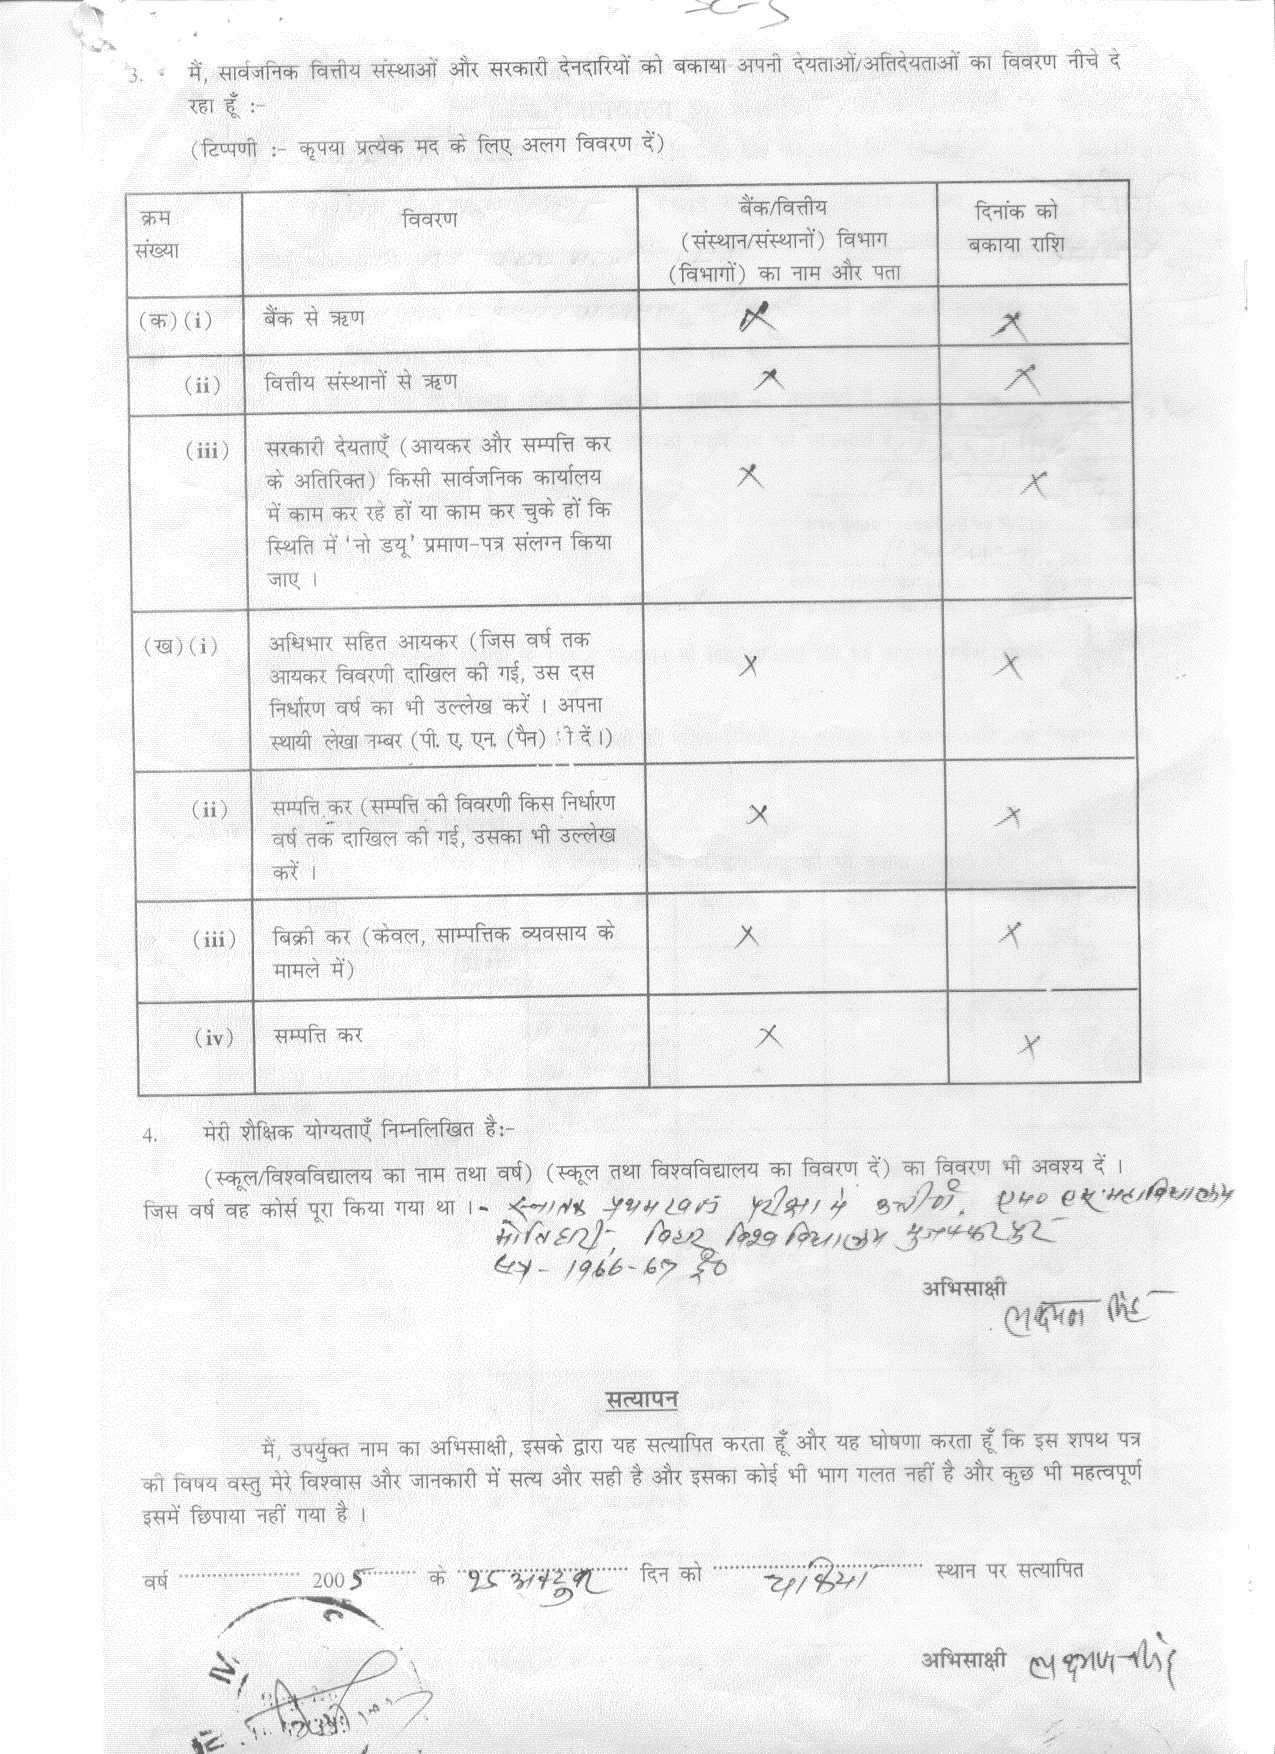 3. मैं, सार्वजनिक वित्तीय संस्थाओं और सरकारी देनदारियों को बकाया अपनी देयताओं/अतिदेयताओं का विवरण नीचे दे
रहा हूँ :-
(टिप्पणी :- कृपया प्रत्येक मद के लिए अलग विवरण दें)
क्रम संख्या
विवरण
बैंक/वित्तीय
(संस्थान/संस्थानों) विभाग
(विभागों) का नाम और पता
दिनांक को
बकाया राशि
(क) (i) बैंक से ऋण × ×
(ii) वित्तीय संस्थानों से ऋण × ×
(iii) सरकारी देयताएँ (आयकर और सम्पत्ति कर × ×
के अतिरिक्त) किसी सार्वजनिक कार्यालय
में काम कर रहे हों या काम कर चुके हों कि
स्थिति में 'नो डयू' प्रमाण-पत्र संलग्न किया
जाए ।
(ख) (i) अधिभार सहित आयकर (जिस वर्ष तक × ×
आयकर विवरणी दाखिल की गई, उस दस
निर्धारण वर्ष का भी उल्लेख करें । अपना
स्थायी लेखा नम्बर (पी. ए. एन. (पैन) दें।)
(ii) सम्पत्ति कर (सम्पत्ति की विवरणी किस निर्धारण × ×
वर्ष तक दाखिल की गई, उसका भी उल्लेख
करें ।
(iii) बिक्री कर (केवल, साम्पत्तिक व्यवसाय के × ×
मामले में)
(iv) सम्पत्ति कर × ×
4. मेरी शैक्षिक योग्यताएँ निम्नलिखित है:-
(स्कूल/विश्वविद्यालय का नाम तथा वर्ष) (स्कूल तथा विश्वविद्यालय का विवरण दें) का विवरण भी अवश्य दें ।
जिस वर्ष वह कोर्स पूरा किया गया था ।- स्नातक प्रथम खण्ड परीक्षा में उत्तीर्ण, एम० एस० महाविद्यालय
मोतिहारी, बिहार विश्वविद्यालय मुजफ्फरपुर
सत्र - 1966-67 ई०
अभिसाक्षी
लक्ष्मण सिंह
सत्यापन
मैं, उपर्युक्त नाम का अभिसाक्षी, इसके द्वारा यह सत्यापित करता हूँ और यह घोषणा करता हूँ कि इस शपथ पत्र
की विषय वस्तु मेरे विश्वास और जानकारी में सत्य और सही है और इसका कोई भी भाग गलत नहीं है और कुछ भी महत्वपूर्ण
इसमें छिपाया नहीं गया है ।
वर्ष 2005 के अक्टूबर दिन को चकिया स्थान पर सत्यापित
अभिसाक्षी लक्ष्मण सिंह